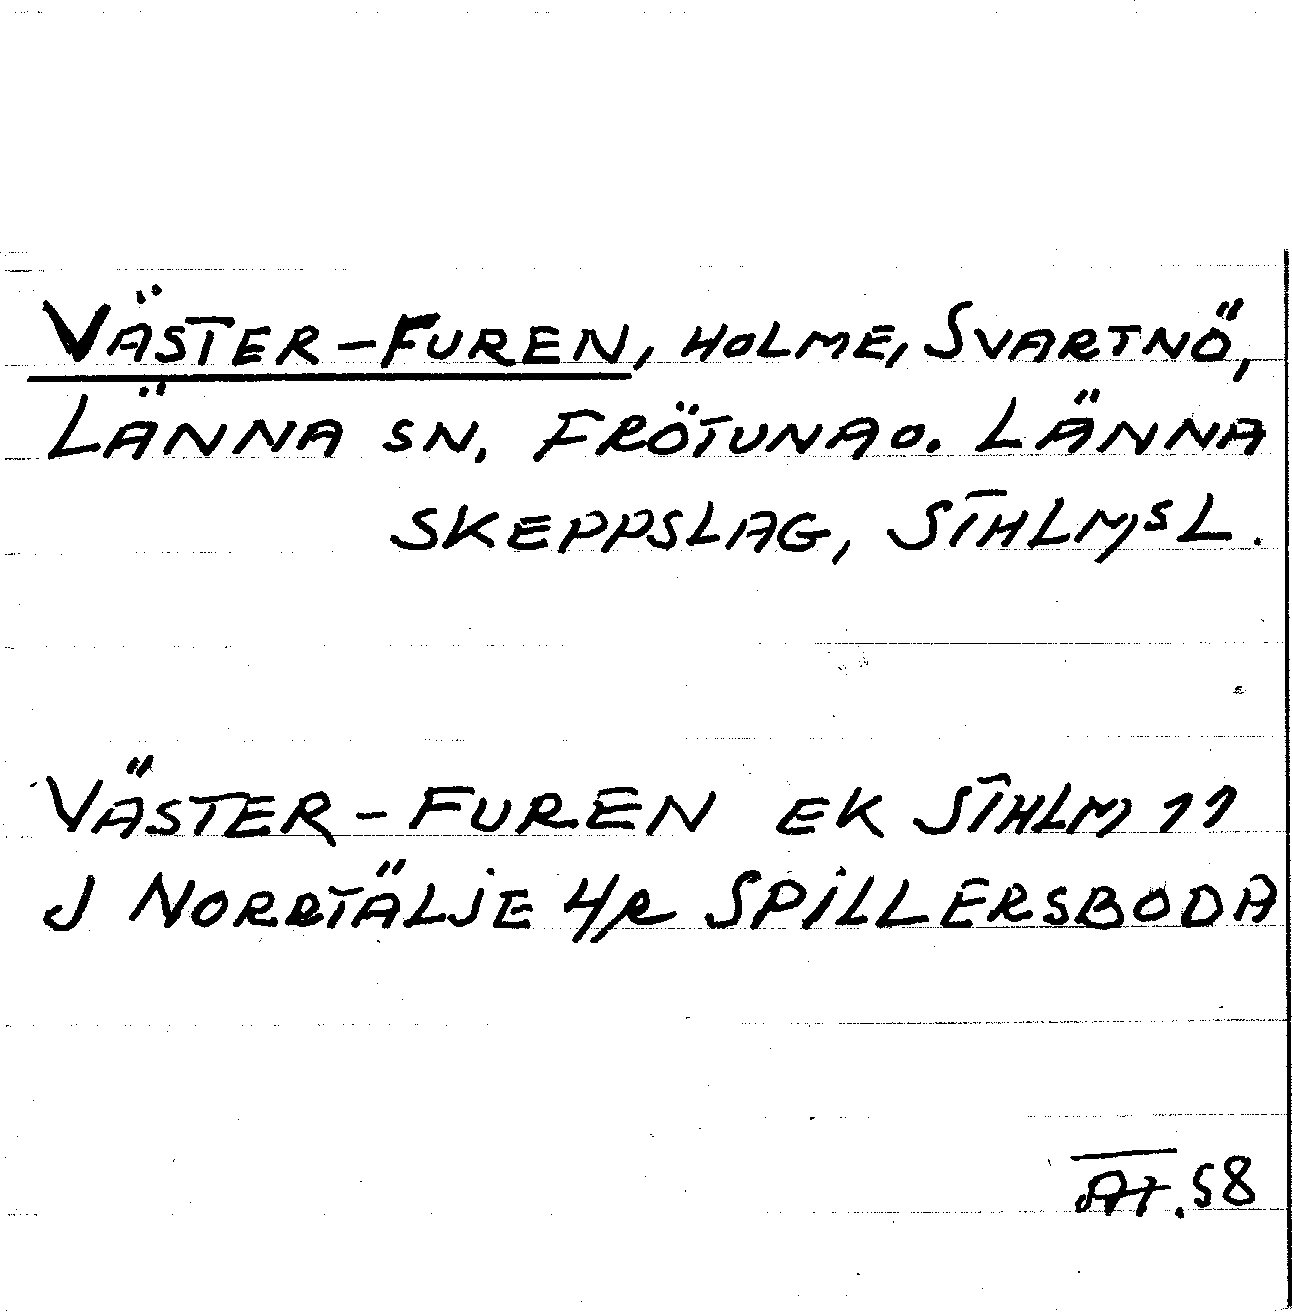 VÄSTER-FUREN, HOLME, SVARTNÖ,
LÄNNA SN, FRÖTUNA O. LÄNNA
SKEPPSLAG, STHLMSL.
VÄSTER-FUREN EK STHLM 11
J NORRTÄLJE 4/R SPILLERSBODA
58